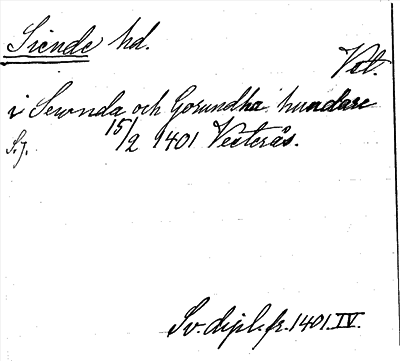 Siende hd.
Vst.
i Sewnda och Gorundha hundare
S. 7. 15/2 1401 Vesterås.
Sv. dipl. fr. 1401. IV.